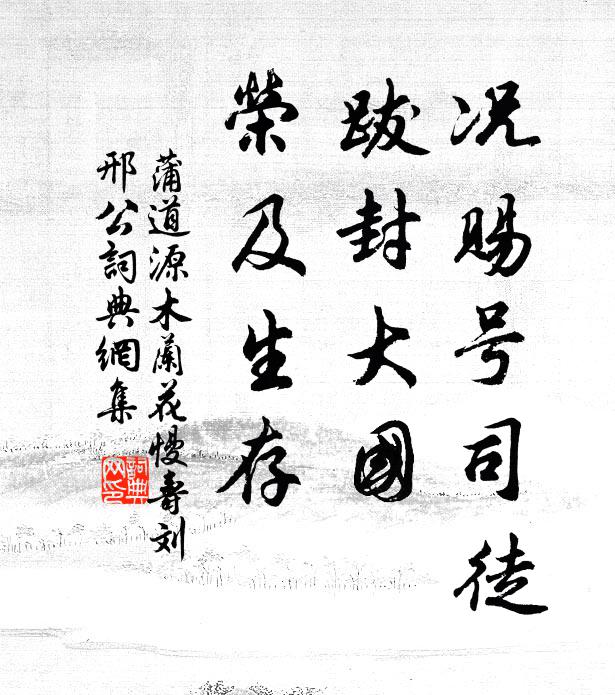 况赐号司徒
跋封大國
榮及生存
蒲道源木蘭花慢壽刘
邢公詞典網集
詞典